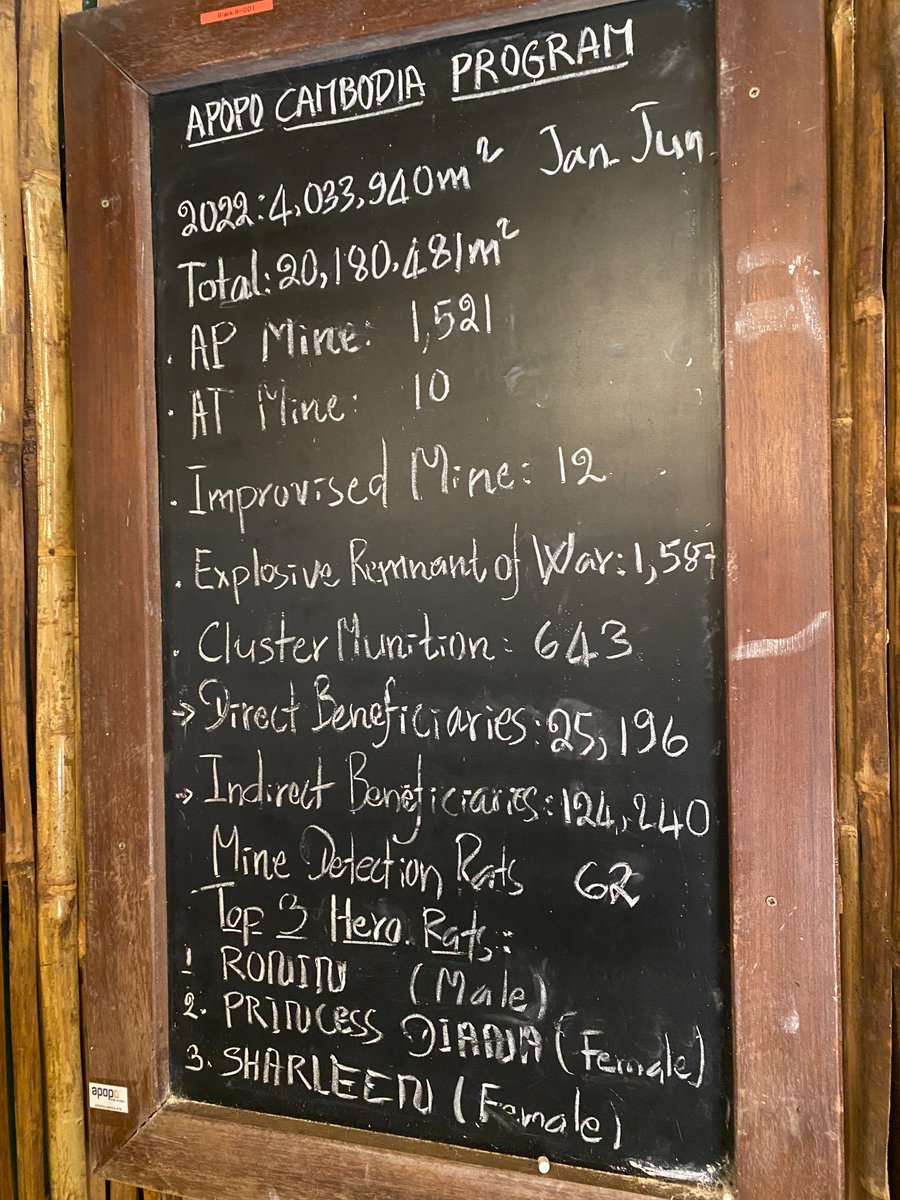 Black B-001
APOPO CAMBODIA PROGRAM
2022: 4,033,940m² Jan Jun
Total: 20,180,481m²
· AP Mine: 1,521
· AT Mine: 10
· Improvised Mine: 12
· Explosive Remnant of War: 1,587
· Cluster Munition: 643
→ Direct Beneficiaries: 25,196
→ Indirect Beneficiaries: 124,240
Mine Detection Rats 62
Top 3 Hero Rats:
1 RONIN (Male)
2. PRINCESS DIANA (Female)
3. SHARLEEN (Female)
apopo